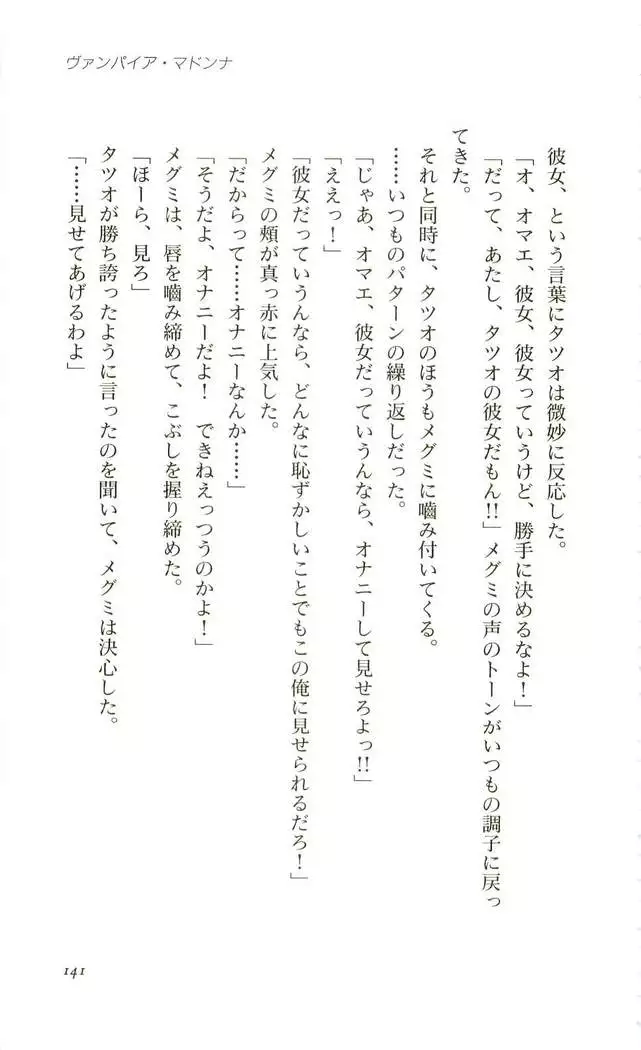 ヴァンパイア・マドンナ
彼女、という言葉にタツオは微妙に反応した。
「オ、オマエ、彼女、彼女っていうけど、勝手に決めるなよ！」
「だって、あたし、タツオの彼女だもん!!」メグミの声のトーンがいつもの調子に戻っ
てきた。
それと同時に、タツオのほうもメグミに嚙み付いてくる。
……いつものパターンの繰り返しだった。
「じゃあ、オマエ、彼女だっていうんなら、オナニーして見せろよっ!!」
「ええっ！」
「彼女だっていうんなら、どんなに恥ずかしいことでもこの俺に見せられるだろ！」
メグミの頬が真っ赤に上気した。
「だからって……オナニーなんか……」
「そうだよ、オナニーだよ！　できねえっつうのかよ！」
メグミは、唇を嚙み締めて、こぶしを握り締めた。
「ほーら、見ろ」
タツオが勝ち誇ったように言ったのを聞いて、メグミは決心した。
「……見せてあげるわよ」
141